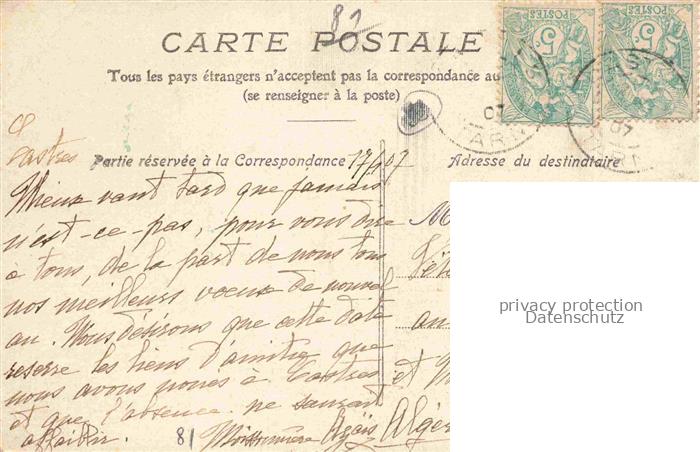 82
CARTE POSTALE
Tous les pays étrangers n'acceptent pas la correspondance au
(se renseigner à la poste)
POSTES 5c
POSTES 5c
07
TARN
CAST
07
TARN
Castres
17 07
Partie réservée à la Correspondance
Adresse du destinataire
Mieux vaut tard que jamais
n'est-ce-pas, pour vous dire
à tous, de la part de nous tous
nos meilleurs voeux de nouvel
an. Nous désirons que cette date
resserre les liens d'amitié que
nous avons noués à Castres
et que l'absence ne saurait
affaiblir.
81
M
an
et M
Algér
privacy protection
Datenschutz